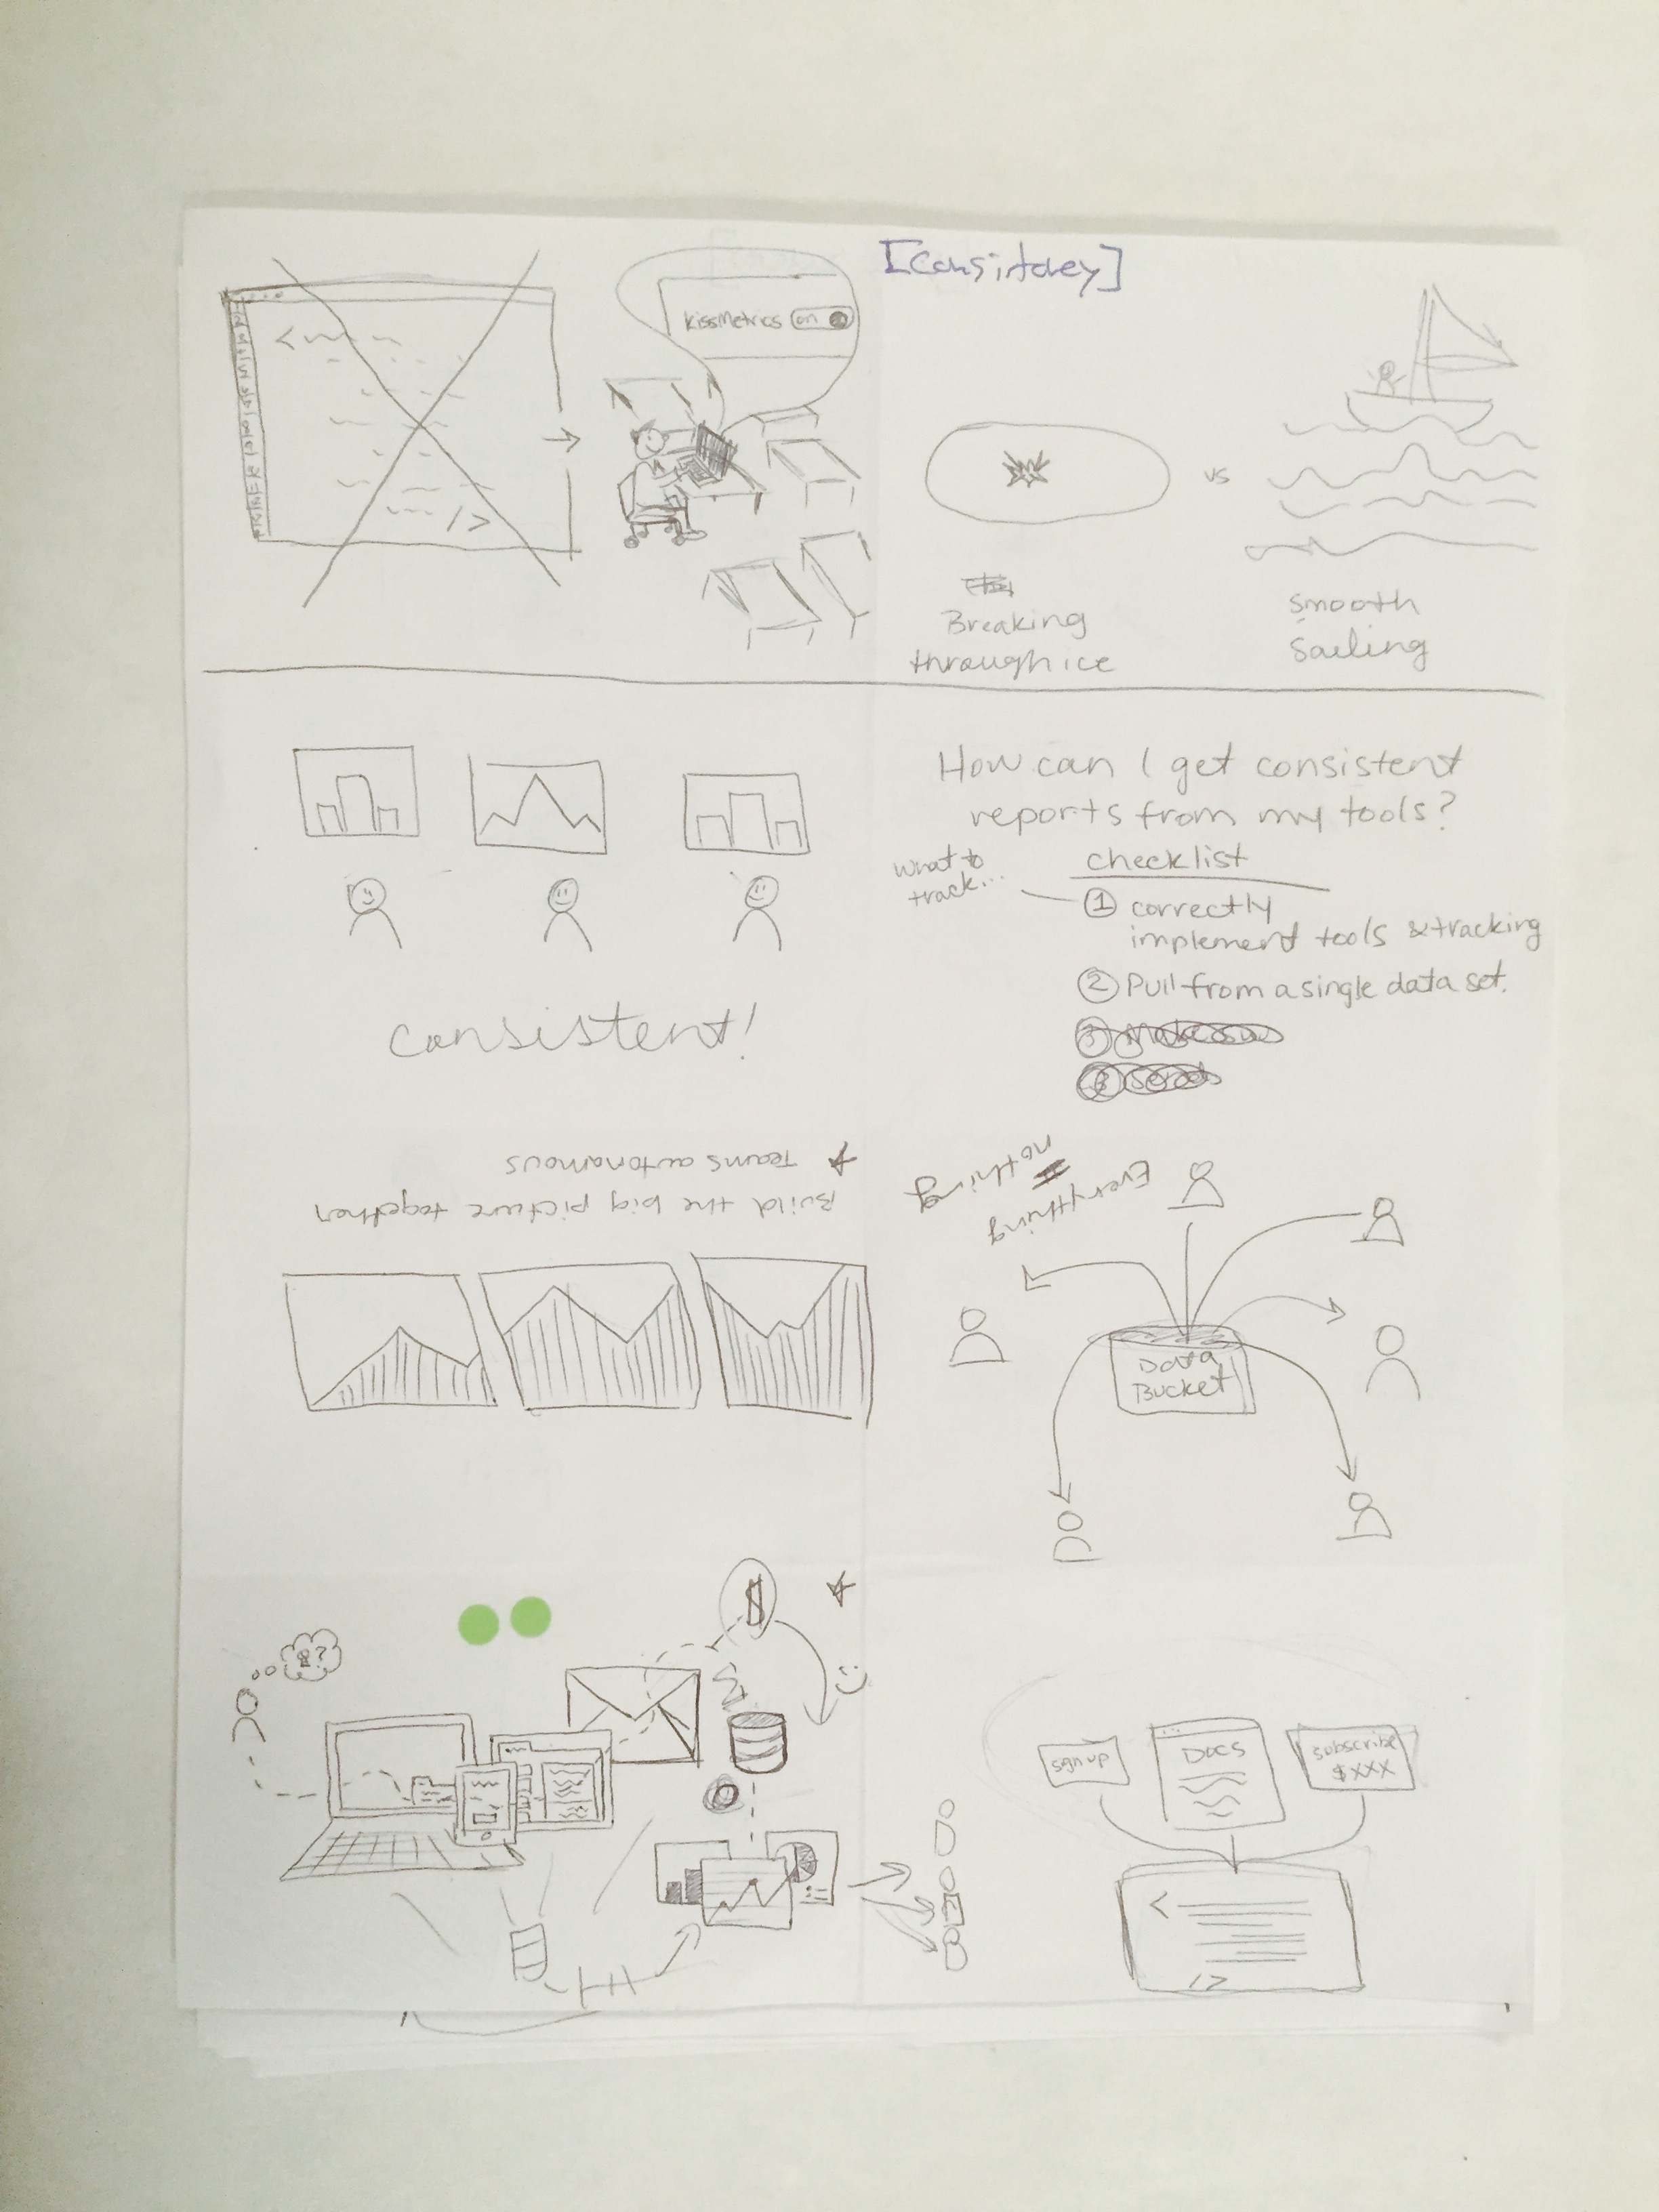 [Consistency]
kissmetrics on
< 
/>
vs
Breaking
through ice
smooth
sailing
How can I get consistent
reports from my tools?
what to
track...
checklist
① correctly
implement tools & tracking
② Pull from a single data set.
consistent!
Build the big picture together
Teams autonomous
Everything
nothing
Data
Bucket
?
$
sign up
Docs
subscribe
$xxx
<
/>